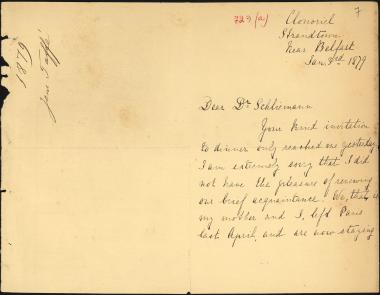 729 (a)
7
Strandtown
Near Belfast
Jan. 3rd 1879
Dear Dr Schliemann
Your kind invitation
to dinner only reached me yesterday
I am extremely sorry that I did
not have the pleasure of renewing
our brief acquaintance. We, that is
my mother and I, left Paris
last April, and are now staying
1879
Jane